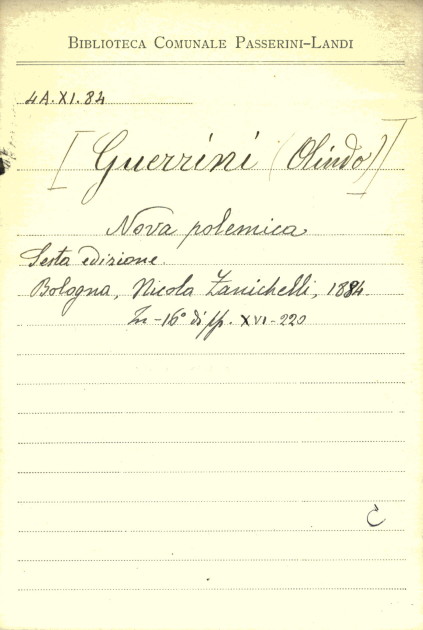 BIBLIOTECA COMUNALE PASSERINI-LANDI
4A.XI.84
[Guerrini (Olindo)]
Nova polemica
Sesta edizione
Bologna, Nicola Zanichelli, 1884.
In-16° di pp. XVI-220
C